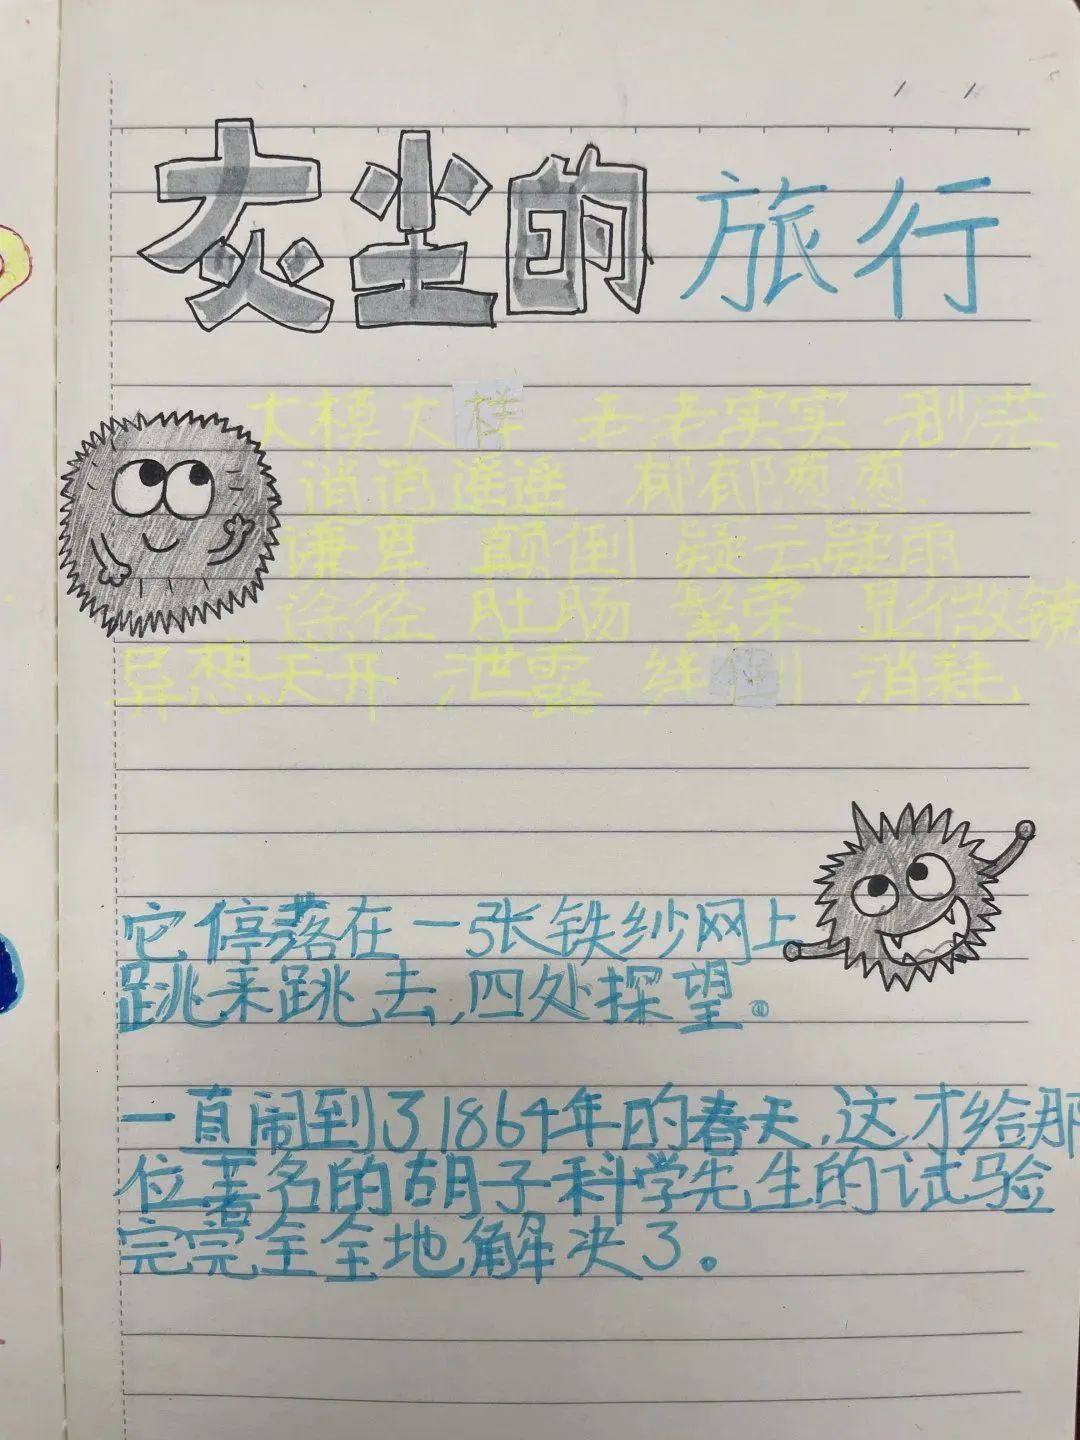 灰尘的旅行
大模大样 老老实实 渺茫
逍逍遥遥 郁郁葱葱
谦卑 颠倒 疑云疑雨
途径 肚肠 繁荣 显微镜
异想天开 泄露 绊倒 消耗
它停落在一张铁纱网上
跳来跳去,四处探望。
一直闹到了1864年的春天,这才给那
位著名的胡子科学先生的试验
完完全全地解决了。